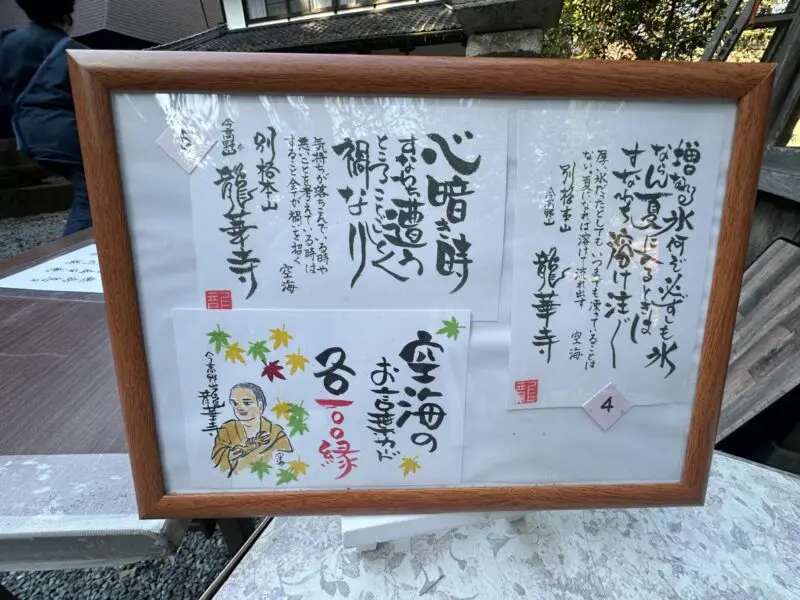 増なる氷何ぞ必ずしも氷
ならん夏になるときは
すなわち溶け注ぐ
厚い氷だったとしてもいつまでも凍っていることは
ない夏になれば溶けて流れ出す 空海
別格本山
今高野山 龍華寺
4
心暗き時
すなわち遭う
ところことごとく
禍なり
気持ちが落ちこんでいる時や
悪いことを考えている時は
すること全てが禍いを招く 空海
別格本山
今高野山 龍華寺
空海の
お言葉カード
各一〇〇縁
今高野山 龍華寺